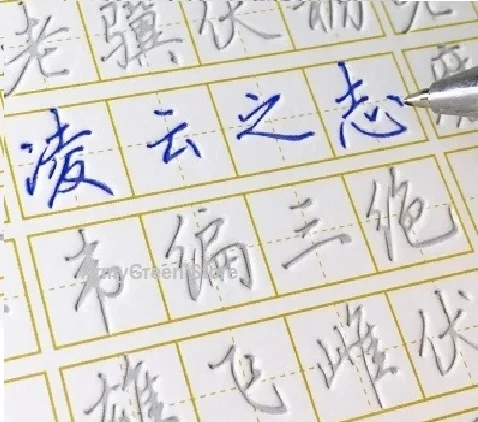 老骥伏枥
凌云之志
韦编三绝
雄飞雌伏